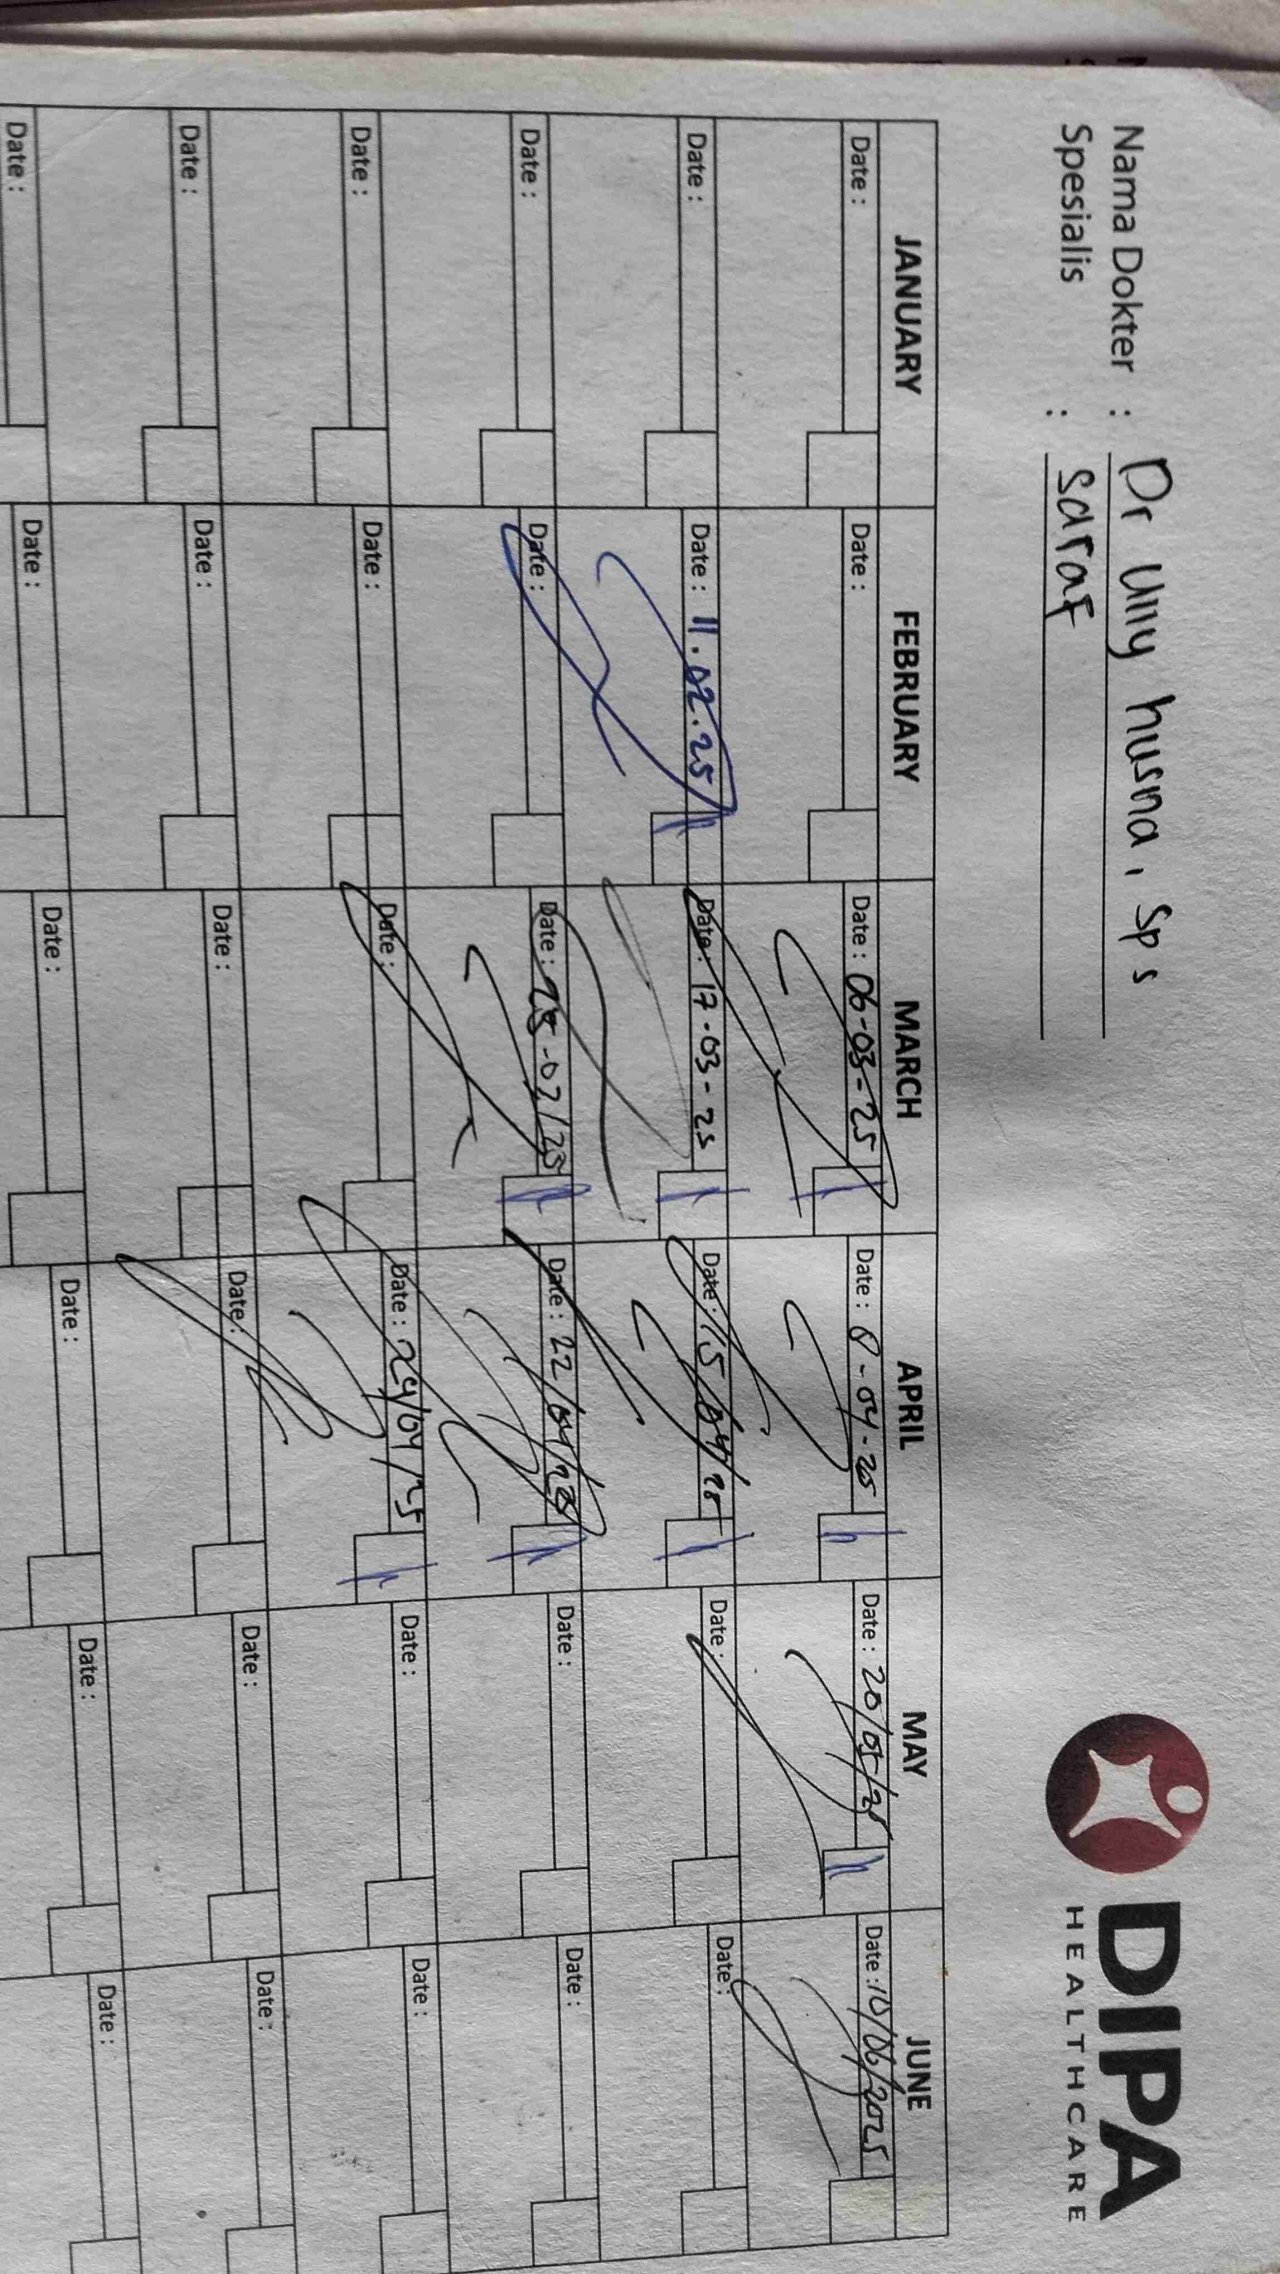 Nama Dokter : Dr Ully husna, Sps
Spesialis : Saraf
DIPA
HEALTHCARE
JANUARY FEBRUARY MARCH APRIL MAY JUNE
Date : Date : Date : 06-03-25 Date : 8-04-25 Date : 20/05/25 Date : 10/06/2025
Date : Date : 11.02.25 Date : 17-03-25 Date : 15/04/25 Date : Date :
Date : Date : Date : Date : 22/04/25 Date : Date :
Date : Date : Date : Date : 29/04/25 Date : Date :
Date : Date : Date : Date : Date : Date :
Date : Date : Date : Date : Date : Date :